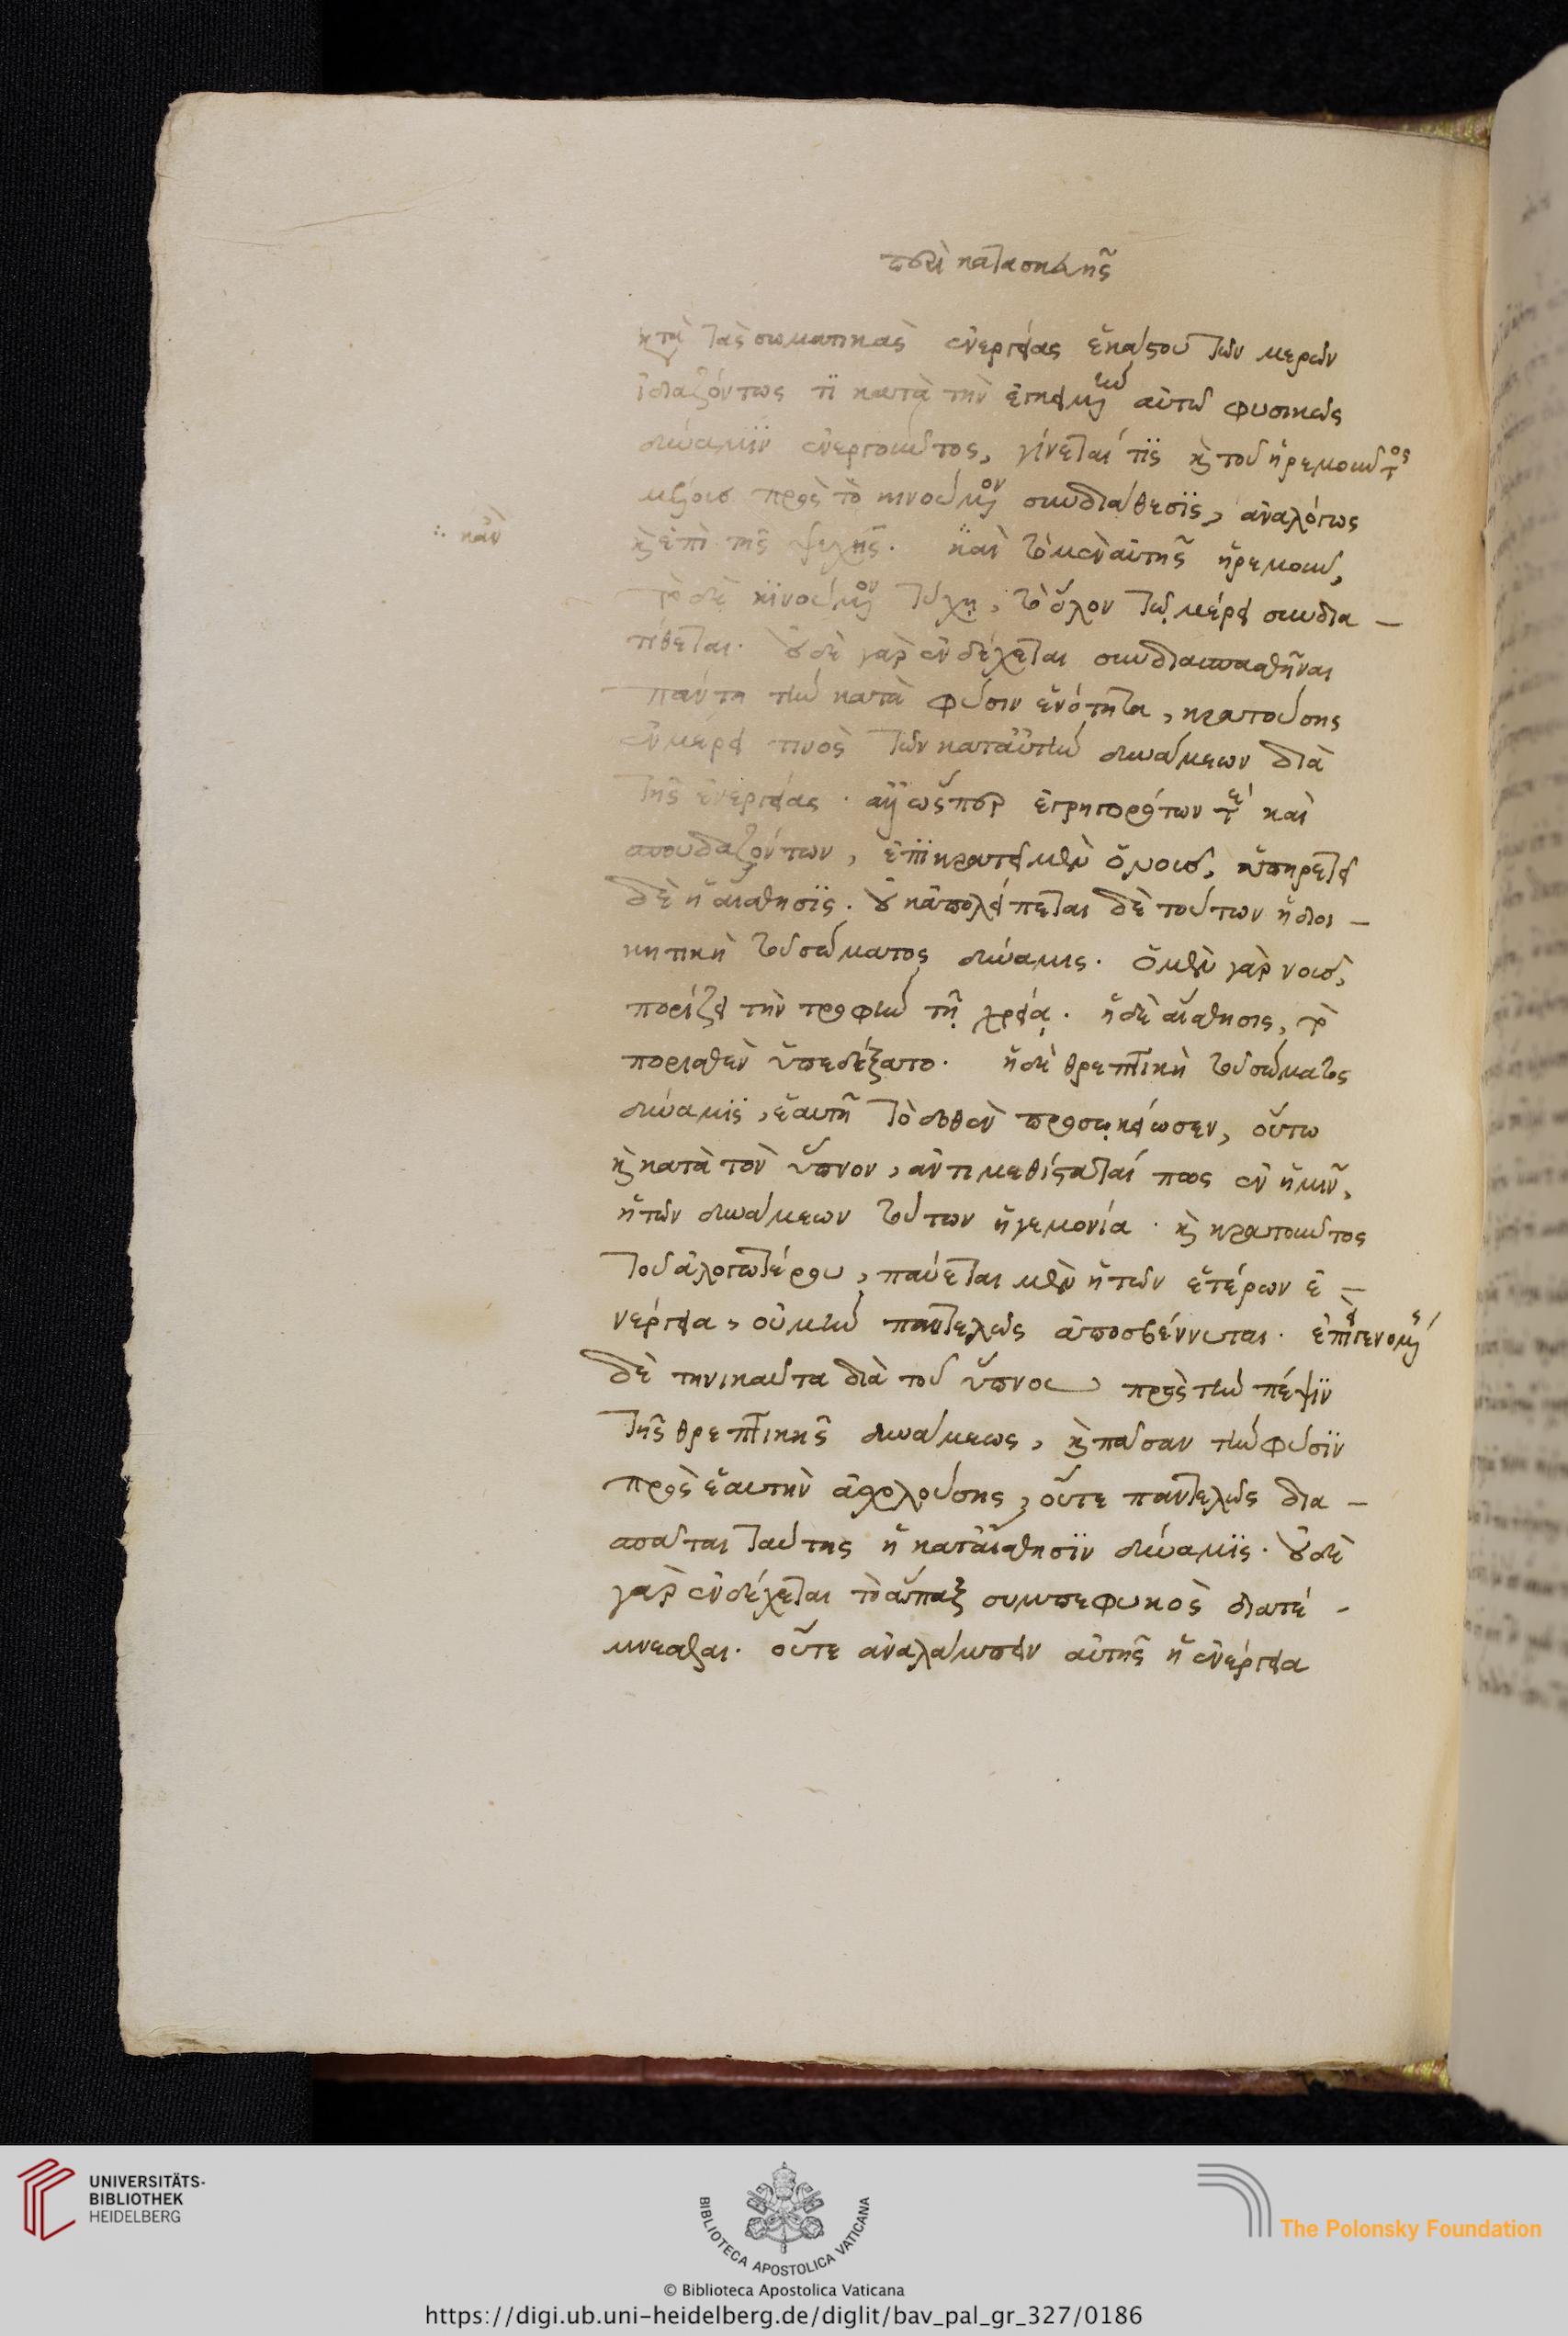 περὶ κατασκευῆς
κατὰ τὰς σωματικὰς ἐνεργείας ἑκάστου τῶν μερῶν
ἰδιαζόντως τϊ κατὰ τὴν ἐγκειμένην αὐτῶ φυσικῶς
δύναμϊν ἐνεργοῦντος, γίνεταί τϊς καὶ τοῦ ἠρεμοῦντος
μέρους πρὸς τὸ κινούμενον συνδιάθεσϊς, ἀναλόγως
∴ κἂν
καὶ ἐπὶ τῆς ψυχῆς. καὶ τὸ μὲν αὐτῆς ἠρεμοῦν,
τὸ δὲ κϊνούμενον τύχη, τὸ ὅλον τῷ μέρει συνδια-
τίθεται. οὐδὲ γὰρ ἐνδέχεται συνδιασπασθῆναι
πάντη τὴν κατὰ φύσιν ἑνότητα, κρατούσης
ἐν μέρει τινὸς τῶν κατ' αὐτὴν δυνάμεων διὰ
τῆς ἐνεργείας. ἀλλ' ὥσπερ ἐγρηγορότων τε καὶ
σπουδαζόντων, ἐπϊκρατεῖ μὲν ὁ νοῦς, ὑπηρετεῖ
δὲ ἡ αἴσθησϊς. οὐκ ἀπολείπεται δὲ τούτων ἡ διοι-
κητικὴ τοῦ σώματος δύναμις. ὁ μὲν γὰρ νοῦς,
πορίζει τὴν τροφὴν τῇ χρείᾳ. ἡ δὲ αἴσθησις, τὸ
πορισθὲν ὑπεδέξατο. ἡ δὲ θρεπτικὴ τοῦ σώματος
δύναμϊς, ἑαυτῇ τὸ δοθὲν προσῳκείωσεν, οὕτω
καὶ κατὰ τὸν ὕπνον, ἀντιμεθίσταταί πως ἐν ἡμῖν,
ἡ τῶν δυνάμεων τούτων ἡγεμονία. καὶ κρατοῦντος
τοῦ ἀλογωτέρου, παύεται μὲν ἡ τῶν ἑτέρων ἐ-
νέργεια, οὐ μὴν παντελῶς ἀποσβέννυται.
δὲ τηνικαῦτα διὰ τοῦ ὕπνου πρὸς τὴν πέψϊν
τῆς θρεπτικῆς δυνάμεως, καὶ πᾶσαν τὴν φύσϊν
πρὸς ἑαυτὴν ἀσχολούσης, οὔτε παντελῶς δια-
σπᾶται ταύτης ἡ κατ' αἴσθησϊν δύναμϊς. οὐδὲ
γὰρ ἐνδέχεται τὸ ἅπαξ συμπεφυκὸς διατέ-
μνεσθαι. οὔτε ἀναλάμπειν αὐτῆς ἡ ἐνέργεια
UNIVERSITÄTS-
BIBLIOTHEK
HEIDELBERG
BIBLIOTECA APOSTOLICA VATICANA
© Biblioteca Apostolica Vaticana
The Polonsky Foundation
https://digi.ub.uni-heidelberg.de/diglit/bav_pal_gr_327/0186